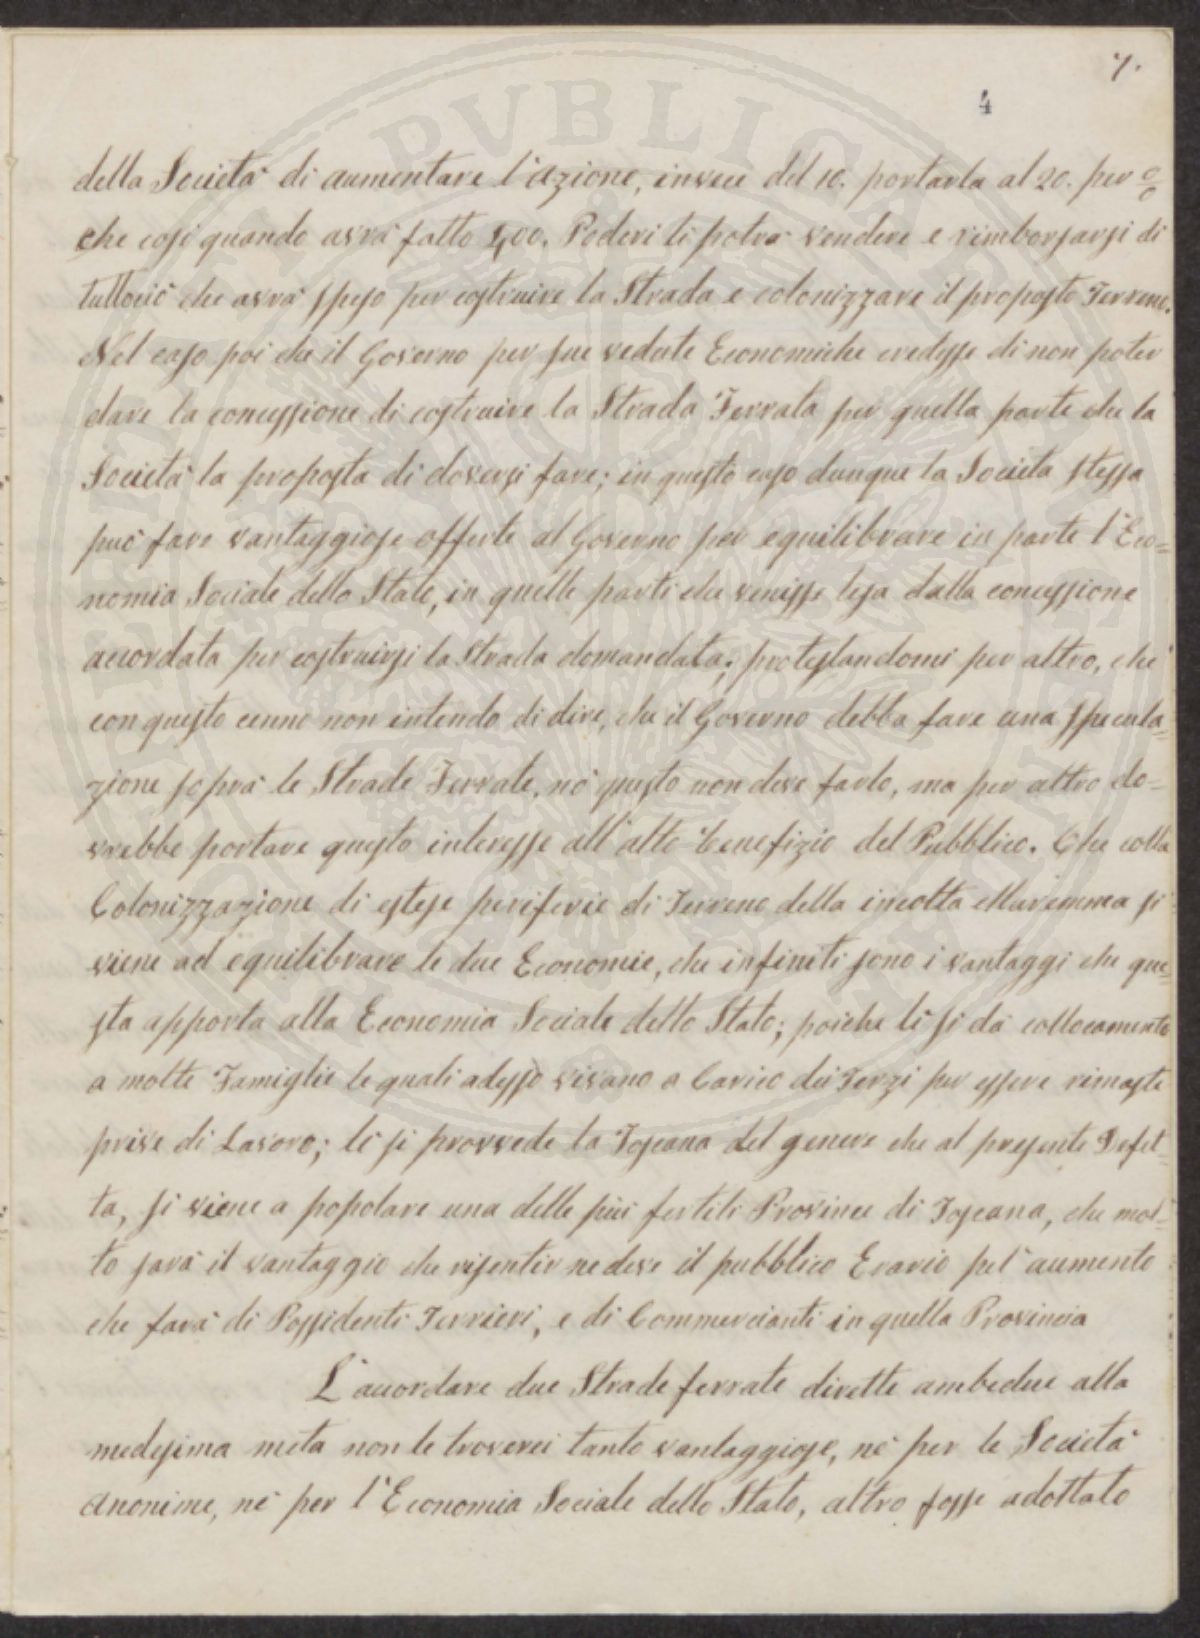 7.
4
della Società di aumentare l'azione, invece del 10. portarla al 20. per %
che così quando avrà fatto 400. Poderi li potrà vendere e rimborsarsi di
tuttociò che avrà speso per costruire la Strada e colonizzare il proposto Terreno.
Nel caso poi che il Governo per sue vedute Economiche credesse di non poter
dare la concessione di costruire la Strada Ferrata per quella parte che la
Società la proposta di doversi fare; in questo caso dunque la Società stessa
può fare vantaggiose offerte al Governo per equilibrare in parte l'Eco=
nomia Sociale dello Stato, in quelle parti che venisse lesa dalla concessione
accordata per costruirsi la Strada domandata; protestandomi per altro, che
con questo cenno non intendo di dire, che il Governo debba fare una specula=
zione sopra le Strade Ferrate, nò questo non deve farlo, ma per altro do=
vrebbe portare questo interesse all'alto benefizio del Pubblico. Che colla
Colonizzazione di estese periferie di Terreno della incolta Maremma si
viene ad equilibrare le due Economie, che infiniti sono i vantaggi che que=
sta apporta alla Economia Sociale dello Stato; poiche li si dà collocamento
a molte Famiglie le quali adesso vivano a Carico dei Terzi per essere rimaste
prive di Lavoro; li si provvede la Toscana del genere che al presente Defet=
ta, si viene a popolare una delle più fertili Province di Toscana, che mol=
to sarà il vantaggio che risentir ne deve il pubblico Erario pel'aumento
che farà di Possidenti Terrieri, e di Commercianti in quella Provincia
L'accordare due Strade ferrate dirette ambedue alla
medesima meta non le troverei tanto vantaggiose, nè per le Società
Anonime, nè per l'Economia Sociale dello Stato, altro fosse adottato